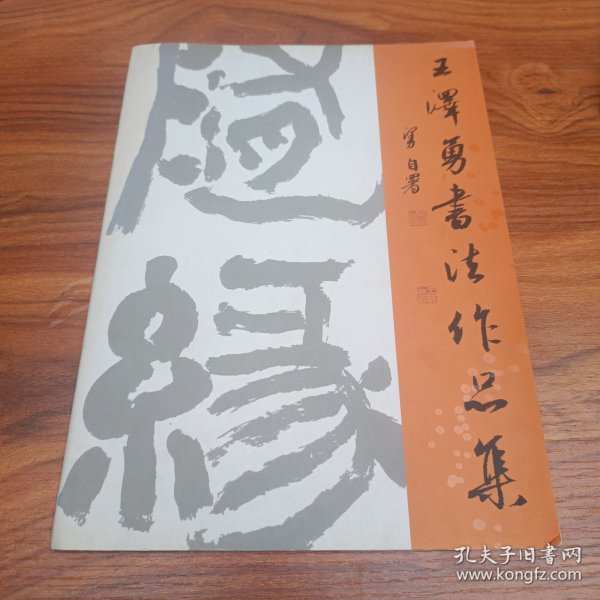 王澤勇書法作品集
勇自署
隨緣
孔夫子旧书网
www.kongfz.com